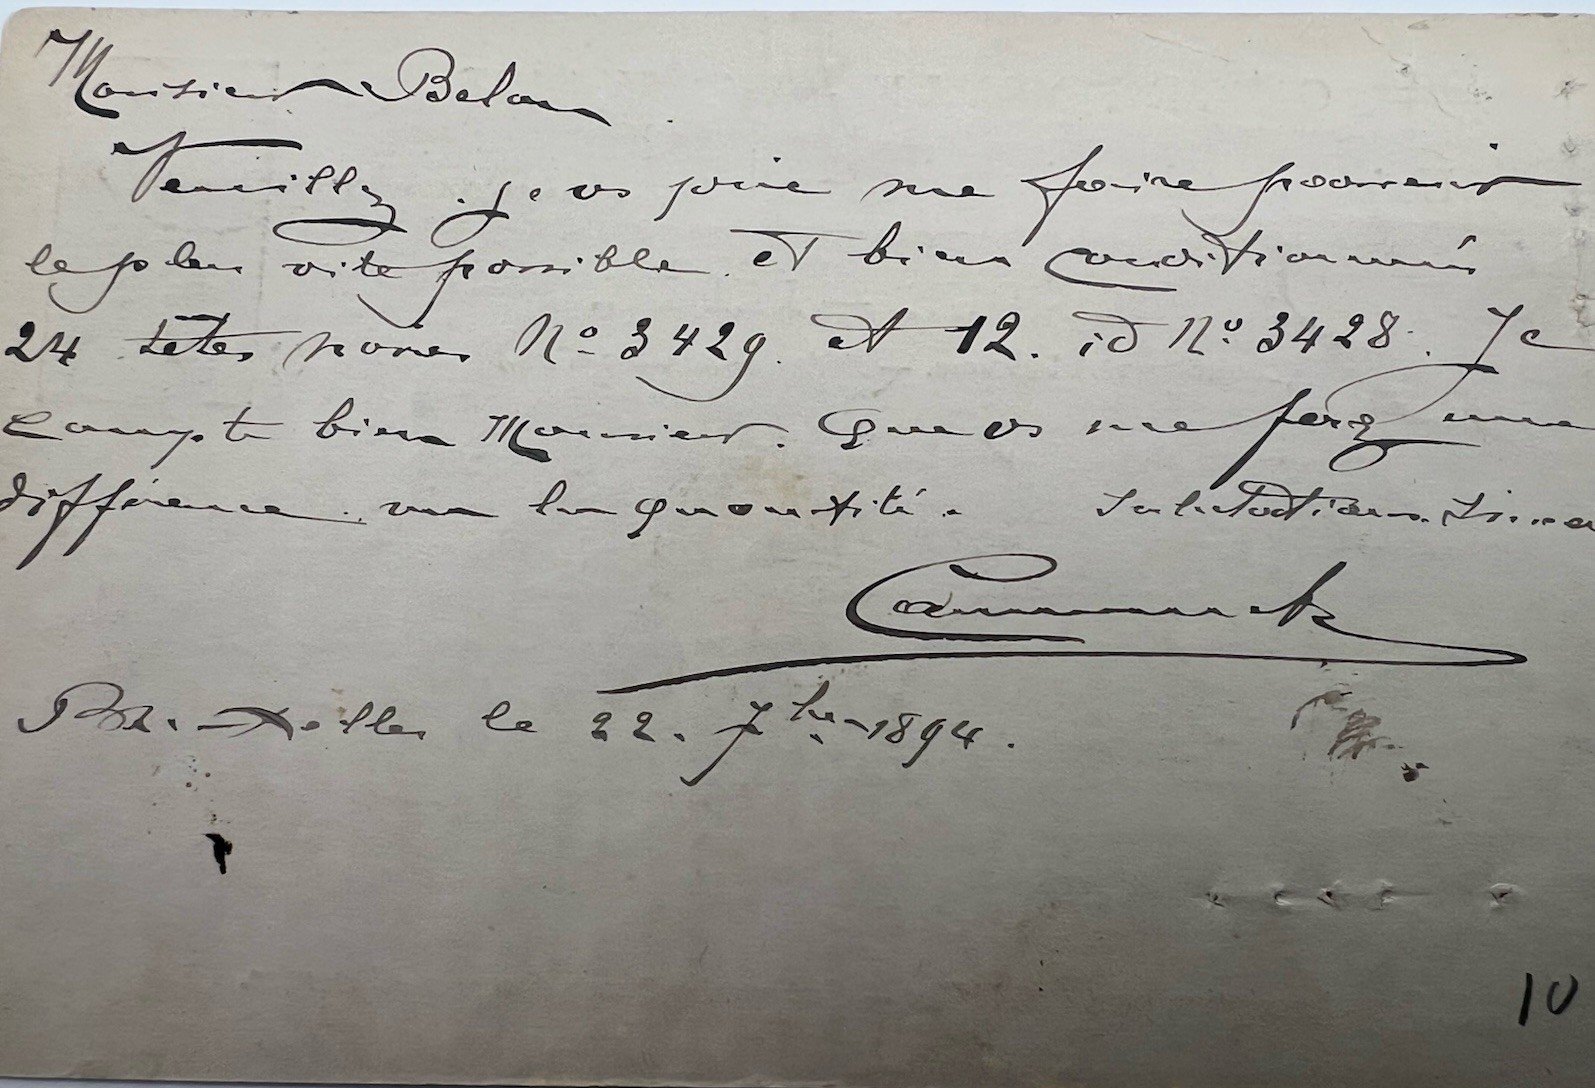 Monsieur Belou
Veuillez, je vs prie me faire parvenir
le plus vite possible et bien conditionnés
24 têtes noires No 3429. et 12. id No. 3428. Je
compte bien Monsieur. que vs me ferez une
différence. vu la quantité. Salutations. Sincer
Bruxelles le 22. 7bre 1894.
10